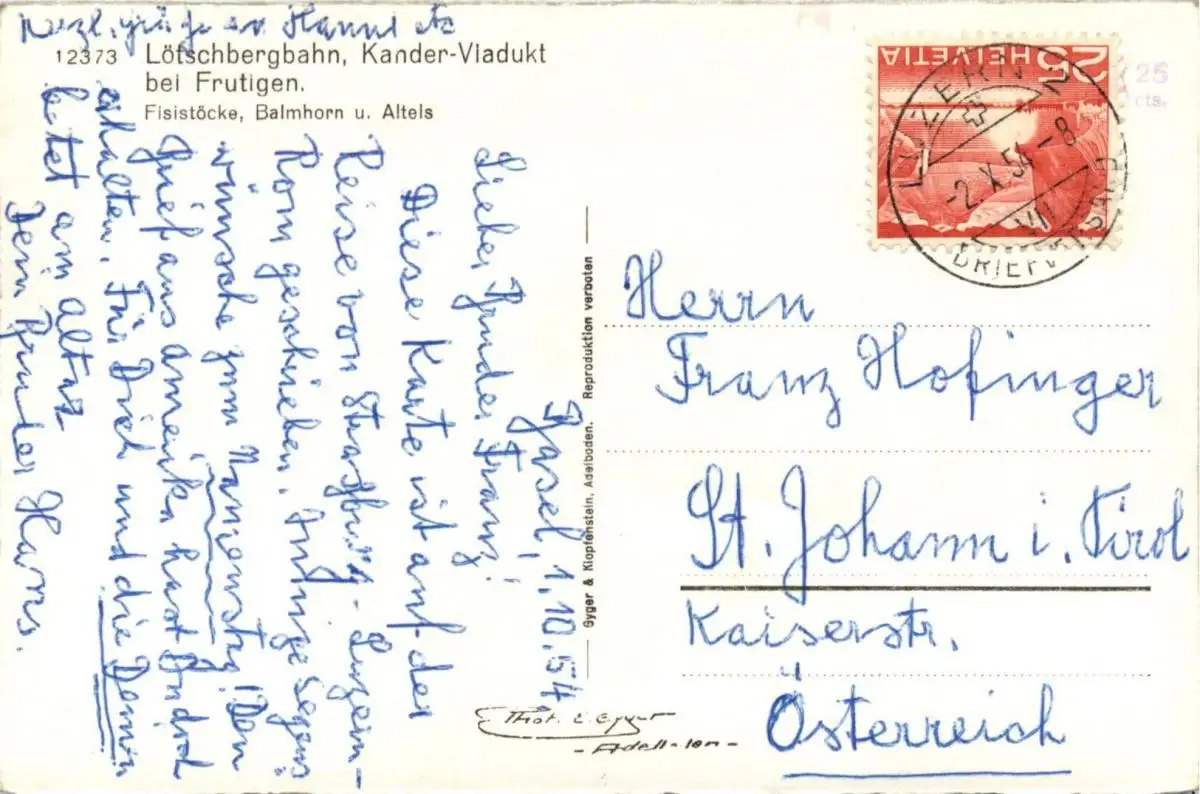 12373 Lötschbergbahn, Kander-Viadukt
bei Frutigen.
Fisistöcke, Balmhorn u. Altels
Basel, 1.10.54
Lieber Bruder Franz!
Diese Karte ist auf der
Reise von Straßburg - Luzern -
Rom geschrieben. Innige Segens
wünsche zum Namenstag! Den
Brief aus Amerika hast Du doch
erhalten. Für Dich und die Deinen
betet am Altar
Dein Bruder Hans.
Herzl. Grüße an Hanna etz
Gyger & Klopfenstein, Adelboden. Reproduktion verboten
Phot. E. Gyger
- Adelboden -
HELVETIA 25
LUZERN 2
-2.X.54-8
VII
BRIEFVERSAND
25
cts.
Herrn
Franz Hofinger
St. Johann i. Tirol
Kaiserstr.
Österreich